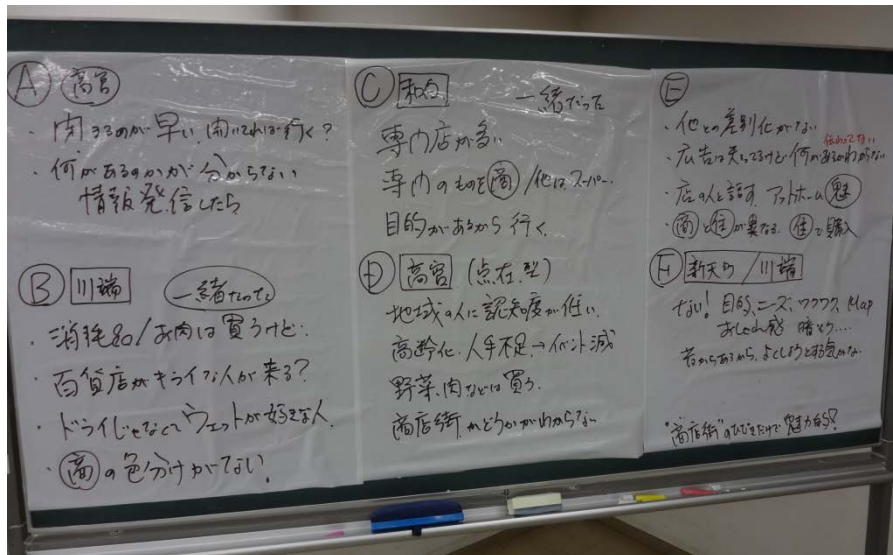 A 高宮
・閉まるのが早い、開いてれば行く?
・何があるのかが分からない
情報発信したら
B 川端 一緒だった
・消耗品/お肉は買うけど…
・百貨店がキライな人が来る?
・ドライじゃなくてウェットが好きな人、
・商の色分けがない!
C 和白 一緒だった
専門店が多い
専門のものを商/他はスーパー
目的があるから行く、
D 高宮(点在型)
地域の人に認知度が低い、
高齢化、人手不足→イベント減
野菜、肉などは買う、
商店街、かどうかがわからない
E
・他との差別化がない
伝わってない
・広告は
何があるかわからない
・店の人と話す、アットホーム 魅
・商と住が異なる、住で購入
F 新天町/川端
ない! 目的、ニーズ、ワクワク、Map
おしゃれ感 暗そう…
昔からあるから、よくしようとする気がない
"商店街"のひびきだけで"魅力的?